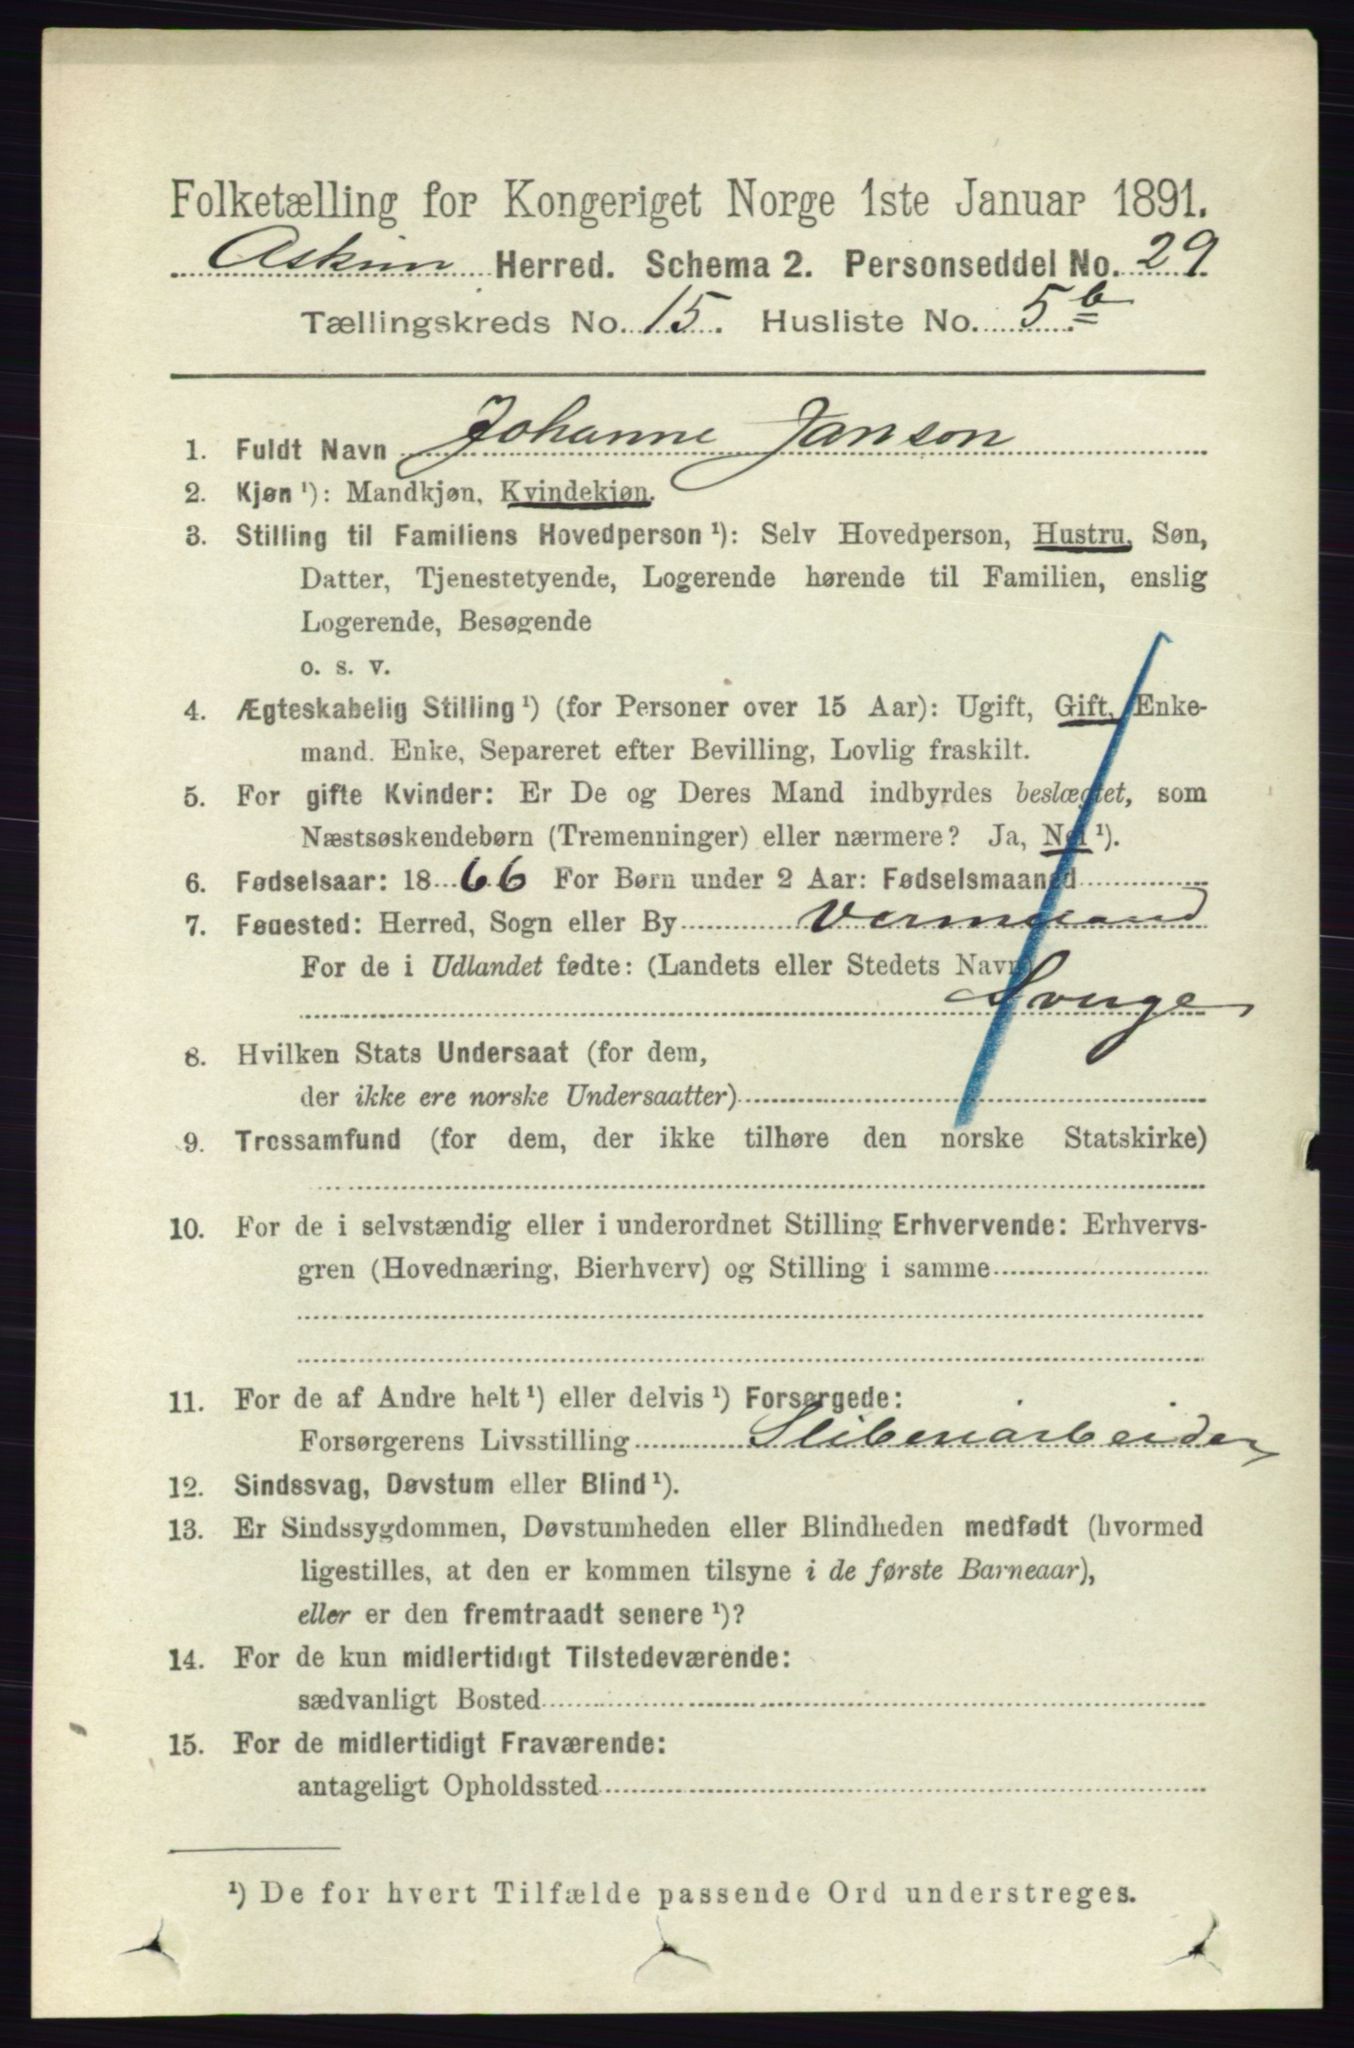 Folketælling for Kongeriget Norge 1ste Januar 1891.
Askim Herred. Schema 2. Personseddel No. 29
Tællingskreds No. 15. Husliste No. 5 b
1. Fuldt Navn Johanne Janson
2. Kjøn ¹): Mandkjøn, Kvindekjøn.
3. Stilling til Familiens Hovedperson ¹): Selv Hovedperson, Hustru, Søn,
Datter, Tjenestetyende, Logerende hørende til Familien, enslig
Logerende, Besøgende
o. s. v.
4. Ægteskabelig Stilling ¹) (for Personer over 15 Aar): Ugift, Gift, Enke-
mand. Enke, Separeret efter Bevilling, Lovlig fraskilt.
5. For gifte Kvinder: Er De og Deres Mand indbyrdes beslægtet, som
Næstsøskendebørn (Tremenninger) eller nærmere? Ja, Nei ¹).
6. Fødselsaar: 1866 For Børn under 2 Aar: Fødselsmaaned
7. Fødested: Herred, Sogn eller By Vermeland
For de i Udlandet fødte: (Landets eller Stedets Navn)
Sverge
8. Hvilken Stats Undersaat (for dem,
der ikke ere norske Undersaatter)
9. Trossamfund (for dem, der ikke tilhøre den norske Statskirke)
10. For de i selvstændig eller i underordnet Stilling Erhvervende: Erhvervs-
gren (Hovednæring, Bierhverv) og Stilling i samme
11. For de af Andre helt ¹) eller delvis ¹) Forsørgede:
Forsørgerens Livsstilling Sliberiarbeider
12. Sindssvag, Døvstum eller Blind ¹).
13. Er Sindssygdommen, Døvstumheden eller Blindheden medfødt (hvormed
ligestilles, at den er kommen tilsyne i de første Barneaar),
eller er den fremtraadt senere ¹)?
14. For de kun midlertidigt Tilstedeværende:
sædvanligt Bosted
15. For de midlertidigt Fraværende:
antageligt Opholdssted
¹) De for hvert Tilfælde passende Ord understreges.